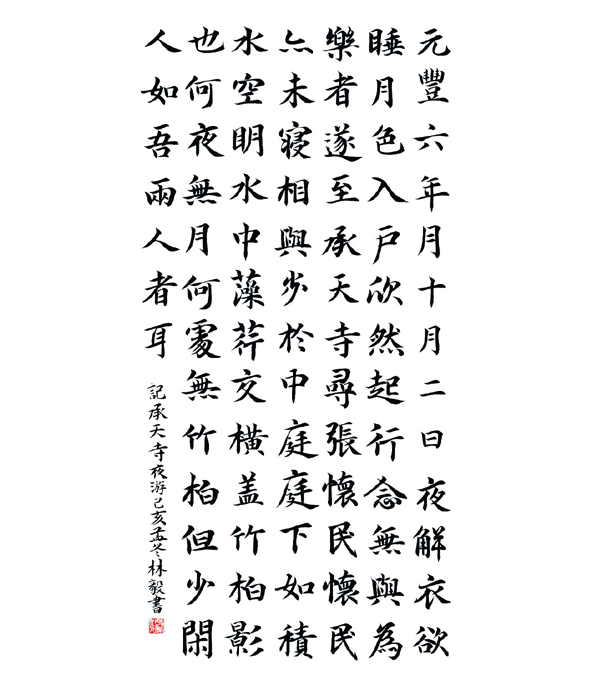 元豐六年月十月二日夜解衣欲
睡月色入戶欣然起行念無與為
樂者遂至承天寺尋張懷民懷民
亦未寢相與步於中庭庭下如積
水空明水中藻荇交橫盖竹柏影
也何夜無月何處無竹柏但少閑
人如吾兩人者耳
記承天寺夜游己亥孟冬林毅書